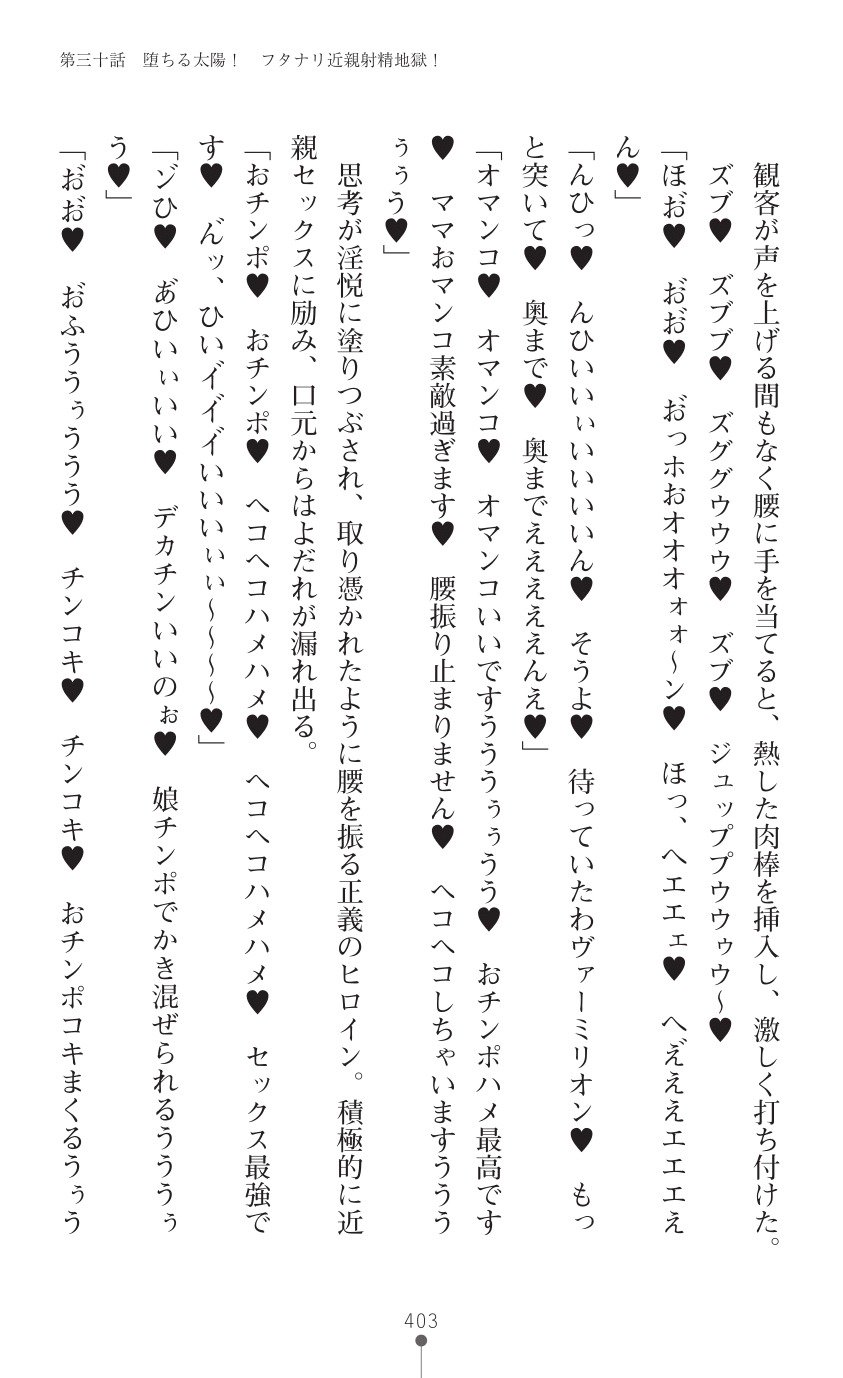 第三十話　堕ちる太陽！　フタナリ近親射精地獄！
観客が声を上げる間もなく腰に手を当てると、熱した肉棒を挿入し、激しく打ち付けた。
ズブ♥　ズブブ♥　ズググウウウ♥　ズブ♥　ジュッププウウゥウ～♥
「ほお゛♥　お゛お゛♥　お゛っホおオオオォォ～ン♥　ほっ、へエエェ♥　へえ゛ええエエエぇ
ん♥」
「んひっ♥　んひいいぃいいいいん♥　そうよ♥　待っていたわヴァーミリオン♥　もっ
と突いて♥　奥まで♥　奥までえええええんえ♥」
「オマンコ♥　オマンコ♥　オマンコいいですうううぅぅうう♥　おチンポハメ最高です
♥　ママおマンコ素敵過ぎます♥　腰振り止まりません♥　ヘコヘコしちゃいますううう
ぅぅう♥」
思考が淫悦に塗りつぶされ、取り憑かれたように腰を振る正義のヒロイン。積極的に近
親セックスに励み、口元からはよだれが漏れ出る。
「おチンポ♥　おチンポ♥　ヘコヘコハメハメ♥　ヘコヘコハメハメ♥　セックス最強で
す♥　ん゛ッ、ひいイ゛イ゛イ゛いいいぃぃ～～～～♥」
「ゾひ♥　あ゛ひいぃいい♥　デカチンいいのぉ♥　娘チンポでかき混ぜられるうううぅ
う♥」
「お゛お゛♥　お゛ふううぅううう♥　チンコキ♥　チンコキ♥　おチンポコキまくるうぅう
403